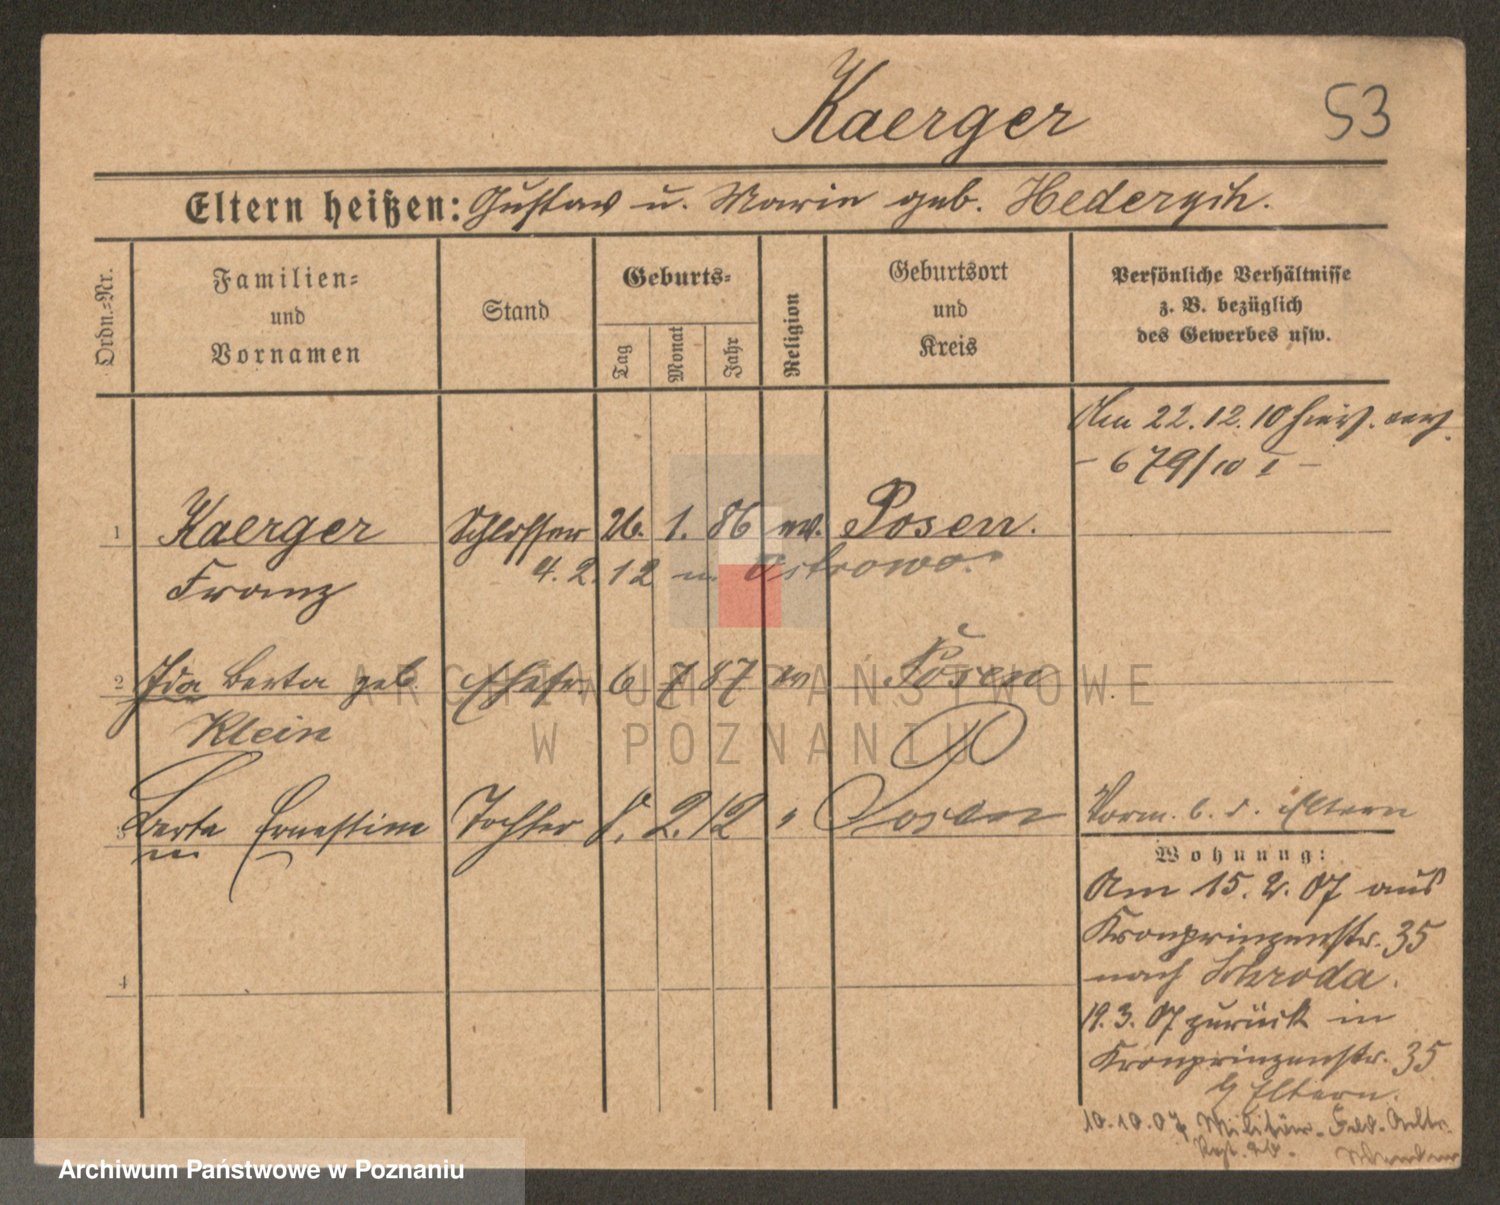 Kaerger
53
Eltern heißen: Gustav u. Marie geb.
Ordn.-Nr.
Familien-
und
Vornamen
Stand
Geburts-
Tag
Monat
Jahr
Religion
Geburtsort
und
Kreis
Persönliche Verhältnisse
z. B. bezüglich
des Gewerbes usw.
Am 22.12.10 hier
- 679/10 I -
1 Kaerger Schlosser 26. 1. 86 ev. Posen.
Franz
4.2.12 in Ostrowo.
2 Ida Berta geb. Ehefr. 6 7 87 ev Posen
Klein
3 Berta Ernestine Tochter 8. 2. 12 " Posen
Vorm. b. d. Eltern
Wohnung:
Am 15. 2. 07 aus
Kronprinzenstr. 35
nach Schroda.
19.3. 07 zurück in
Kronprinzenstr. 35
b/ Eltern.
10.10.07 Militär. Feld-Artl.
Regt.
4
ARCHIWUM PAŃSTWOWE
W POZNANIU
Archiwum Państwowe w Poznaniu